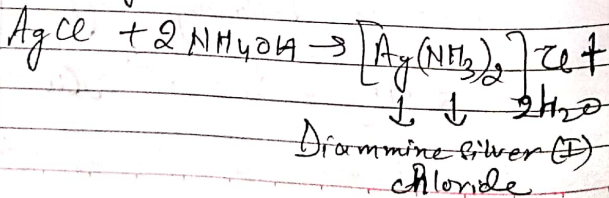 AgCl + 2 NH4OH → [Ag(NH3)2] Cl +
↓ ↓ 2H2O
Diammine Silver (I)
chloride